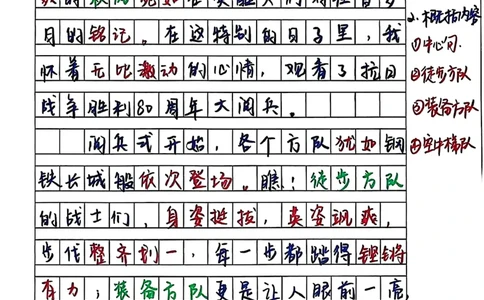 月的铭记。在这特别的日子里，我
怀着无比激动的心情，观看了抗日
战争胜利80周年大阅兵。
阅兵式开始，各个方队犹如钢
铁长城般依次登场。瞧！徒步方队
的战士们，身姿挺拔，英姿飒爽，
步伐整齐划一，每一步都踏得铿锵
有力；装备方队更是让人眼前一亮，
2.概括内容
①中心句
②徒步方队
③装备方队
④空中梯队